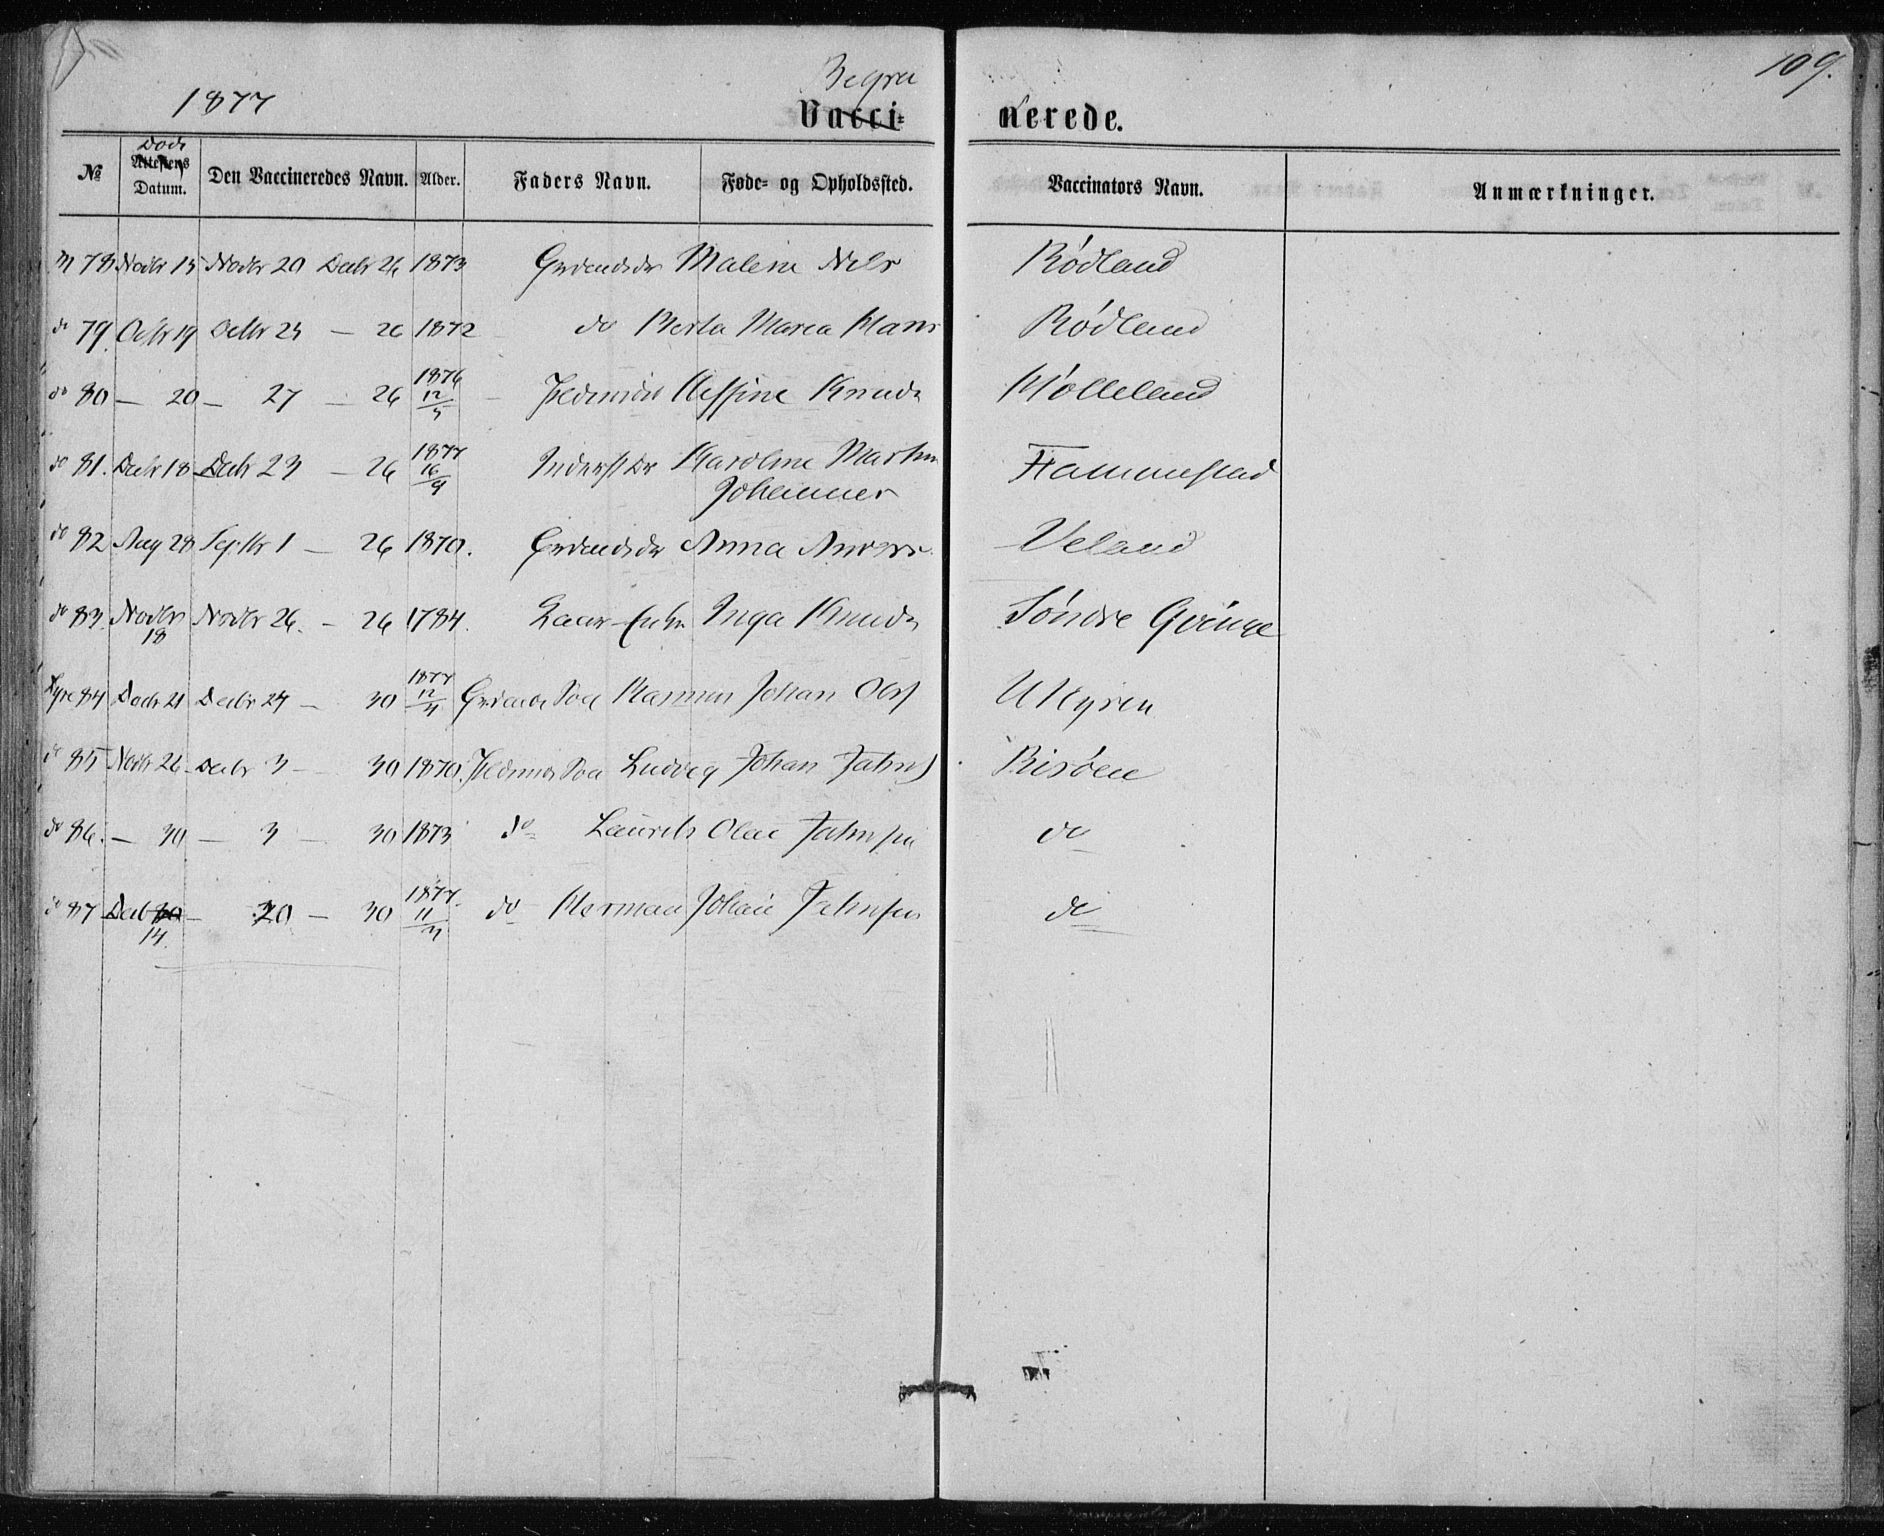 109.
1877 Begra
Vacci= nerede.
Døds
№ Attestens Datum. Den Vaccineredes Navn. Alder. Faders Navn. Føde= og Opholdssted. Vaccinators Navn. Anmærkninger.
78 Novbr 15 Novbr 20 Decbr 26 1873 Malene Nels Rødland
do 79. Octbr 19 Octbr 23 — 26 1872 do Berta Maria Hans Rødland
do 80 — 20 — 27 — 26 1876 12/5 Knuds Mølleland
do 81. Decbr 18 Decbr 23 — 26 1877 16/9 Karoline Marthe
Johannes
do 82 Aug 28 Septbr 1 — 26 1870. Anna Anders Veland
do 83. Novbr 18 Novbr 26. — 26 1784. Inga Knuds Søndre
84 Decbr 21 Decbr 24 — 30 1877 12/4 Søn Rasmus Johan Ols Myren
do 85 Novbr 26 Decbr 3 — 30 1870. Søn Ludvig Johan Jahns Risøen
do 86. — 30 — 3 — 30 1873 do Laurits Olai Jahnsen do
do 87 Decb 14 — 20 — 30 1877. 11/4 do Herman Johan Jahnsen do